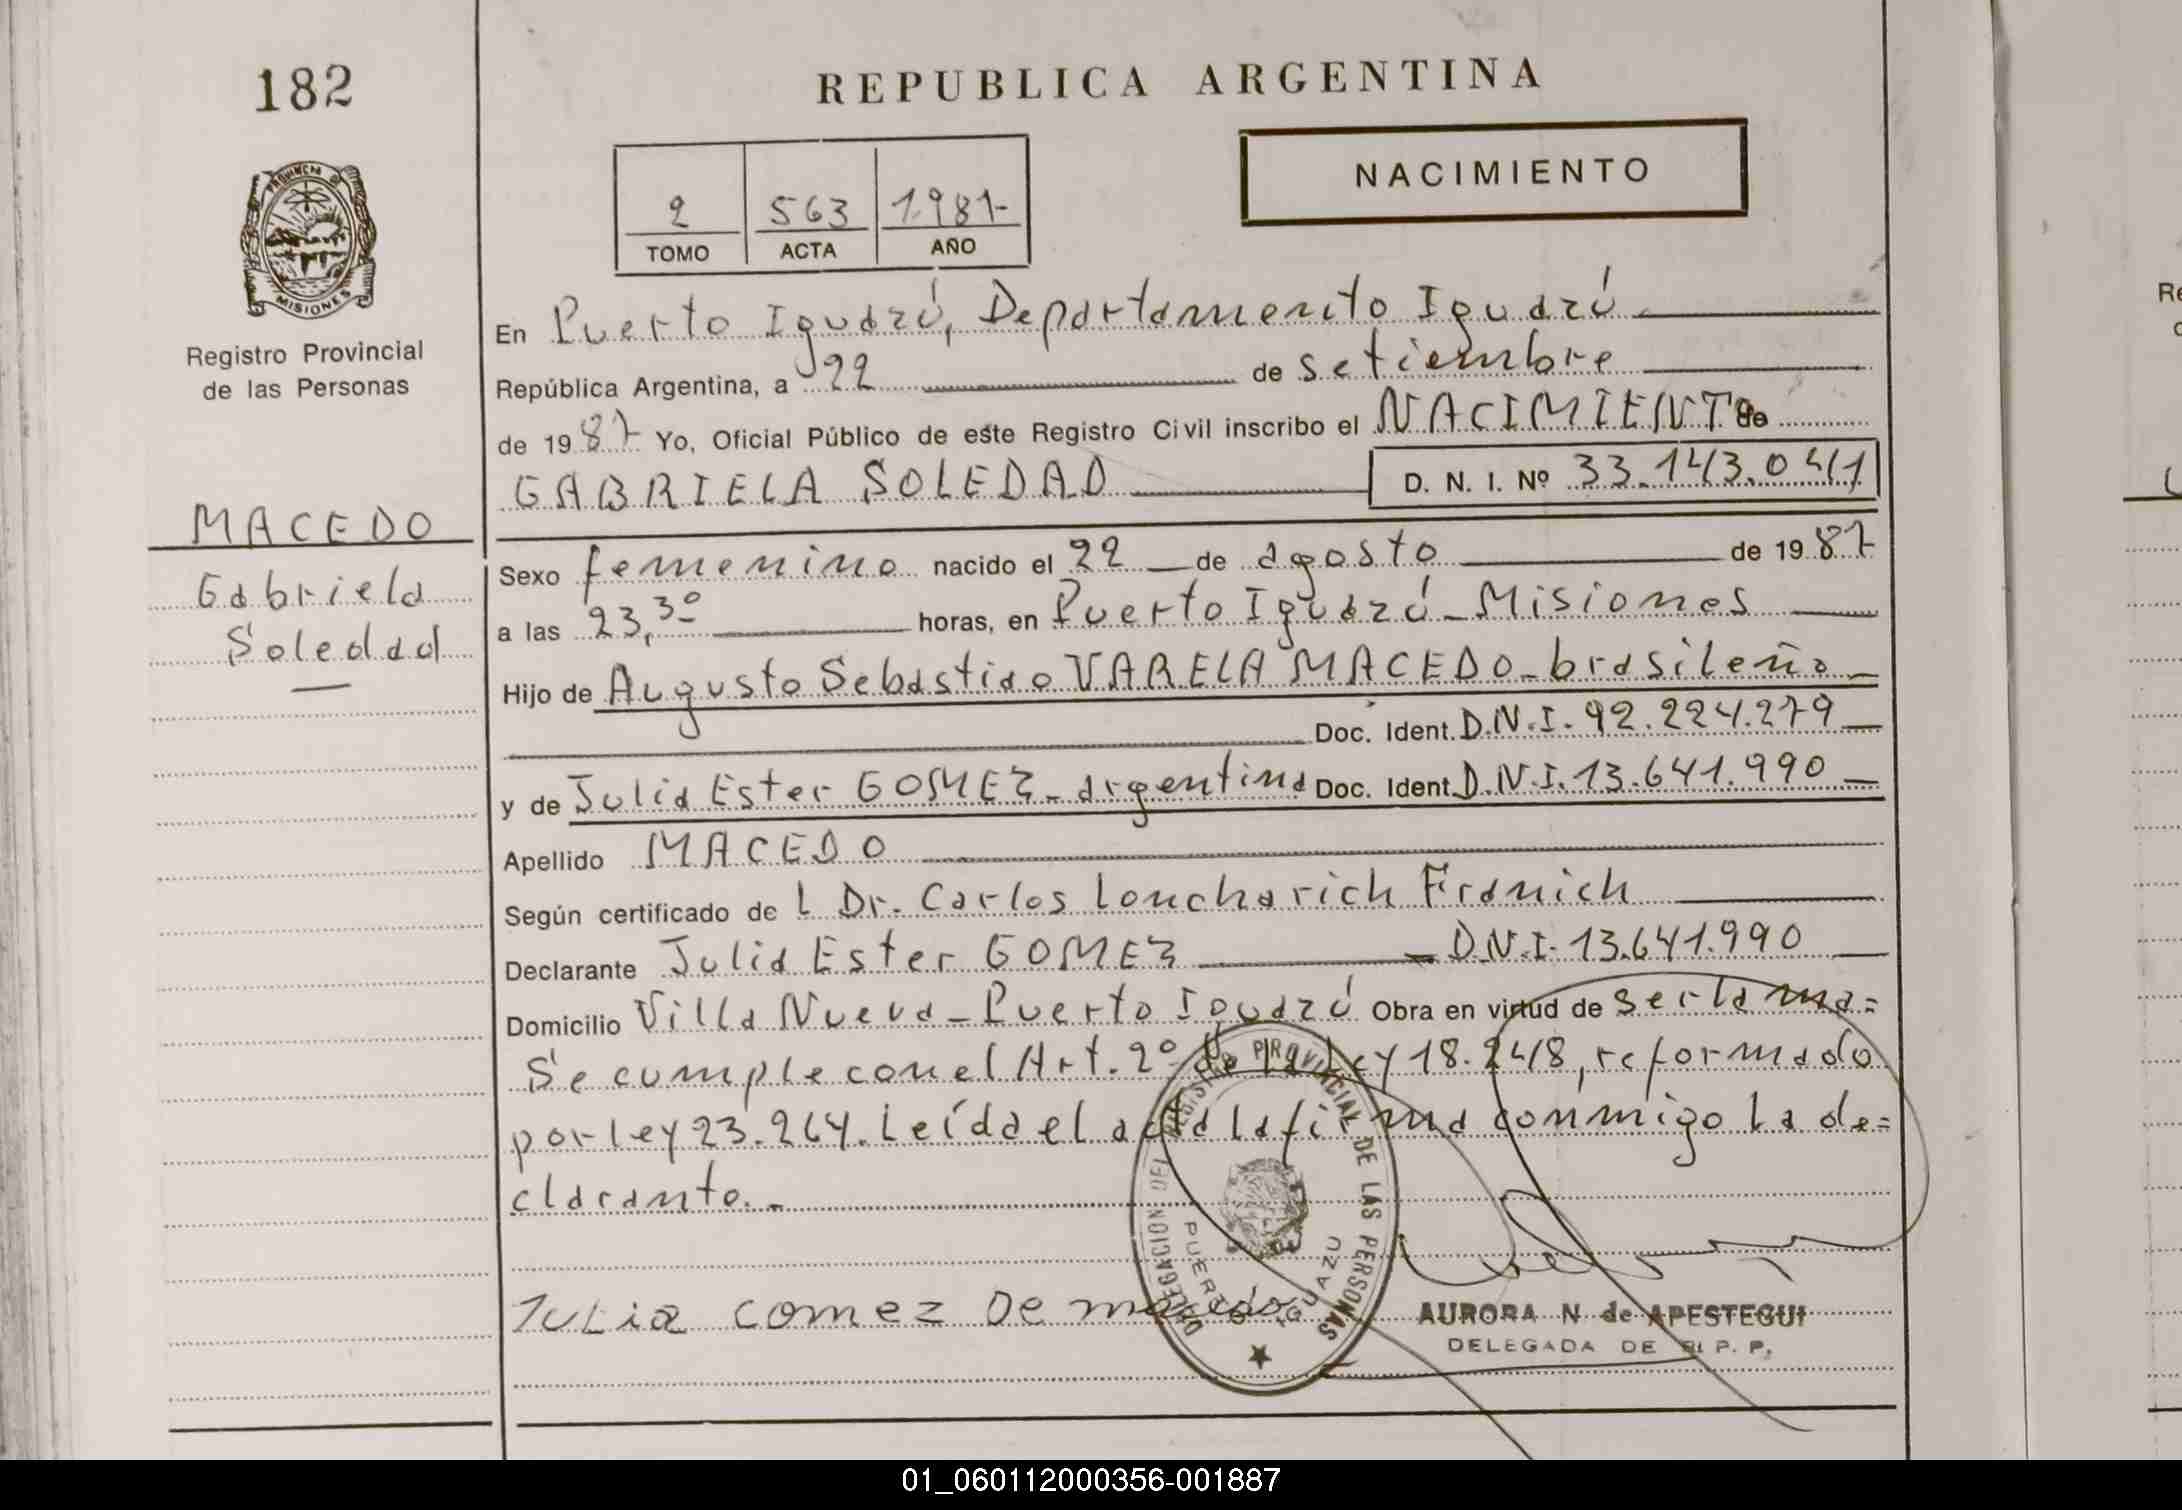 182
REPUBLICA ARGENTINA
NACIMIENTO
2 563 1.987-
TOMO ACTA AÑO
PROVINCIA DE MISIONES
Registro Provincial
de las Personas
MACEDO
Gabriela
Soledad
En Puerto Iguazú, Departamento Iguazú
República Argentina, a 22 de setiembre
de 1987 Yo, Oficial Público de este Registro Civil inscribo el NACIMIENTO de
GABRIELA SOLEDAD D. N. I. Nº 33.143.041
Sexo femenino nacido el 22 de agosto de 1987
a las 23,30 horas, en Puerto Iguazú - Misiones
Hijo de Augusto Sebastiao VARELA MACEDO - brasileño
Doc. Ident. D.N.I. 92.224.279
y de Julia Ester GOMEZ - argentina Doc. Ident. D.N.I. 13.641.990
Apellido MACEDO
Según certificado del Dr. Carlos Loncharich Franich
Declarante Julia Ester GOMEZ - D.N.I. 13.641.990
Domicilio Villa Nueva - Puerto Iguazú Obra en virtud de ser la ma=
Se cumple con el Art. 2º de la Ley 18.248, reformado
por ley 23.264. Leída el acta la firma conmigo la de=
clarante.-
Julia Gomez De
DELEGACION DEL REGISTRO PROVINCIAL DE LAS PERSONAS
PUERTO IGUAZU
AURORA N. de APESTEGUI
DELEGADA DE R. P. P.
01_060112000356-001887